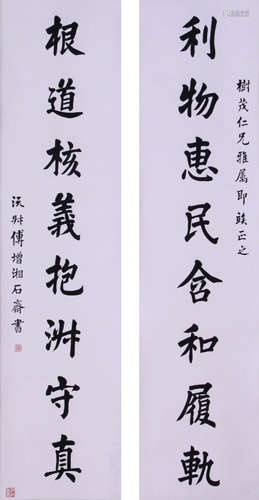 樹茂仁兄雅屬即竢正之
利物惠民含和履軌
根道核義抱淵守真
沅叔傅增湘石齋書